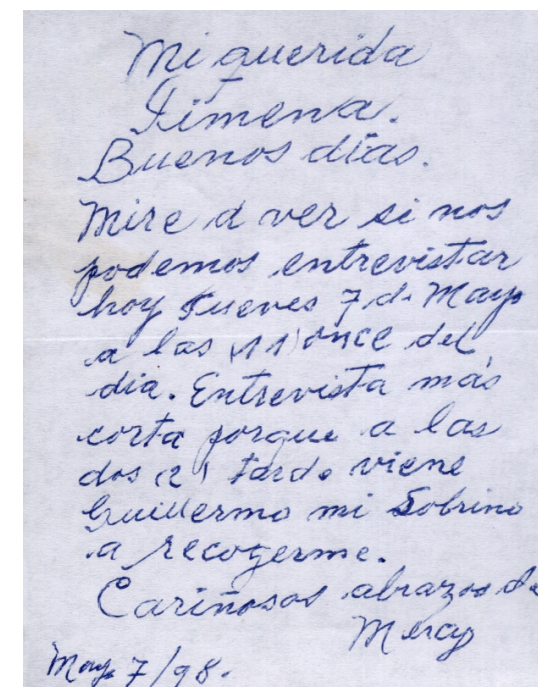 Mi querida
Jimena.
Buenos días.
Mire a ver si nos
podemos entrevistar
hoy Jueves 7 d. Mayo
a las (11) once del
dia. Entrevista más
corta porque a las
dos (2) tard. viene
Guillermo mi Sobrino
a recogerme.
Cariñosos abrazos de
Meray
Mayo 7/98.